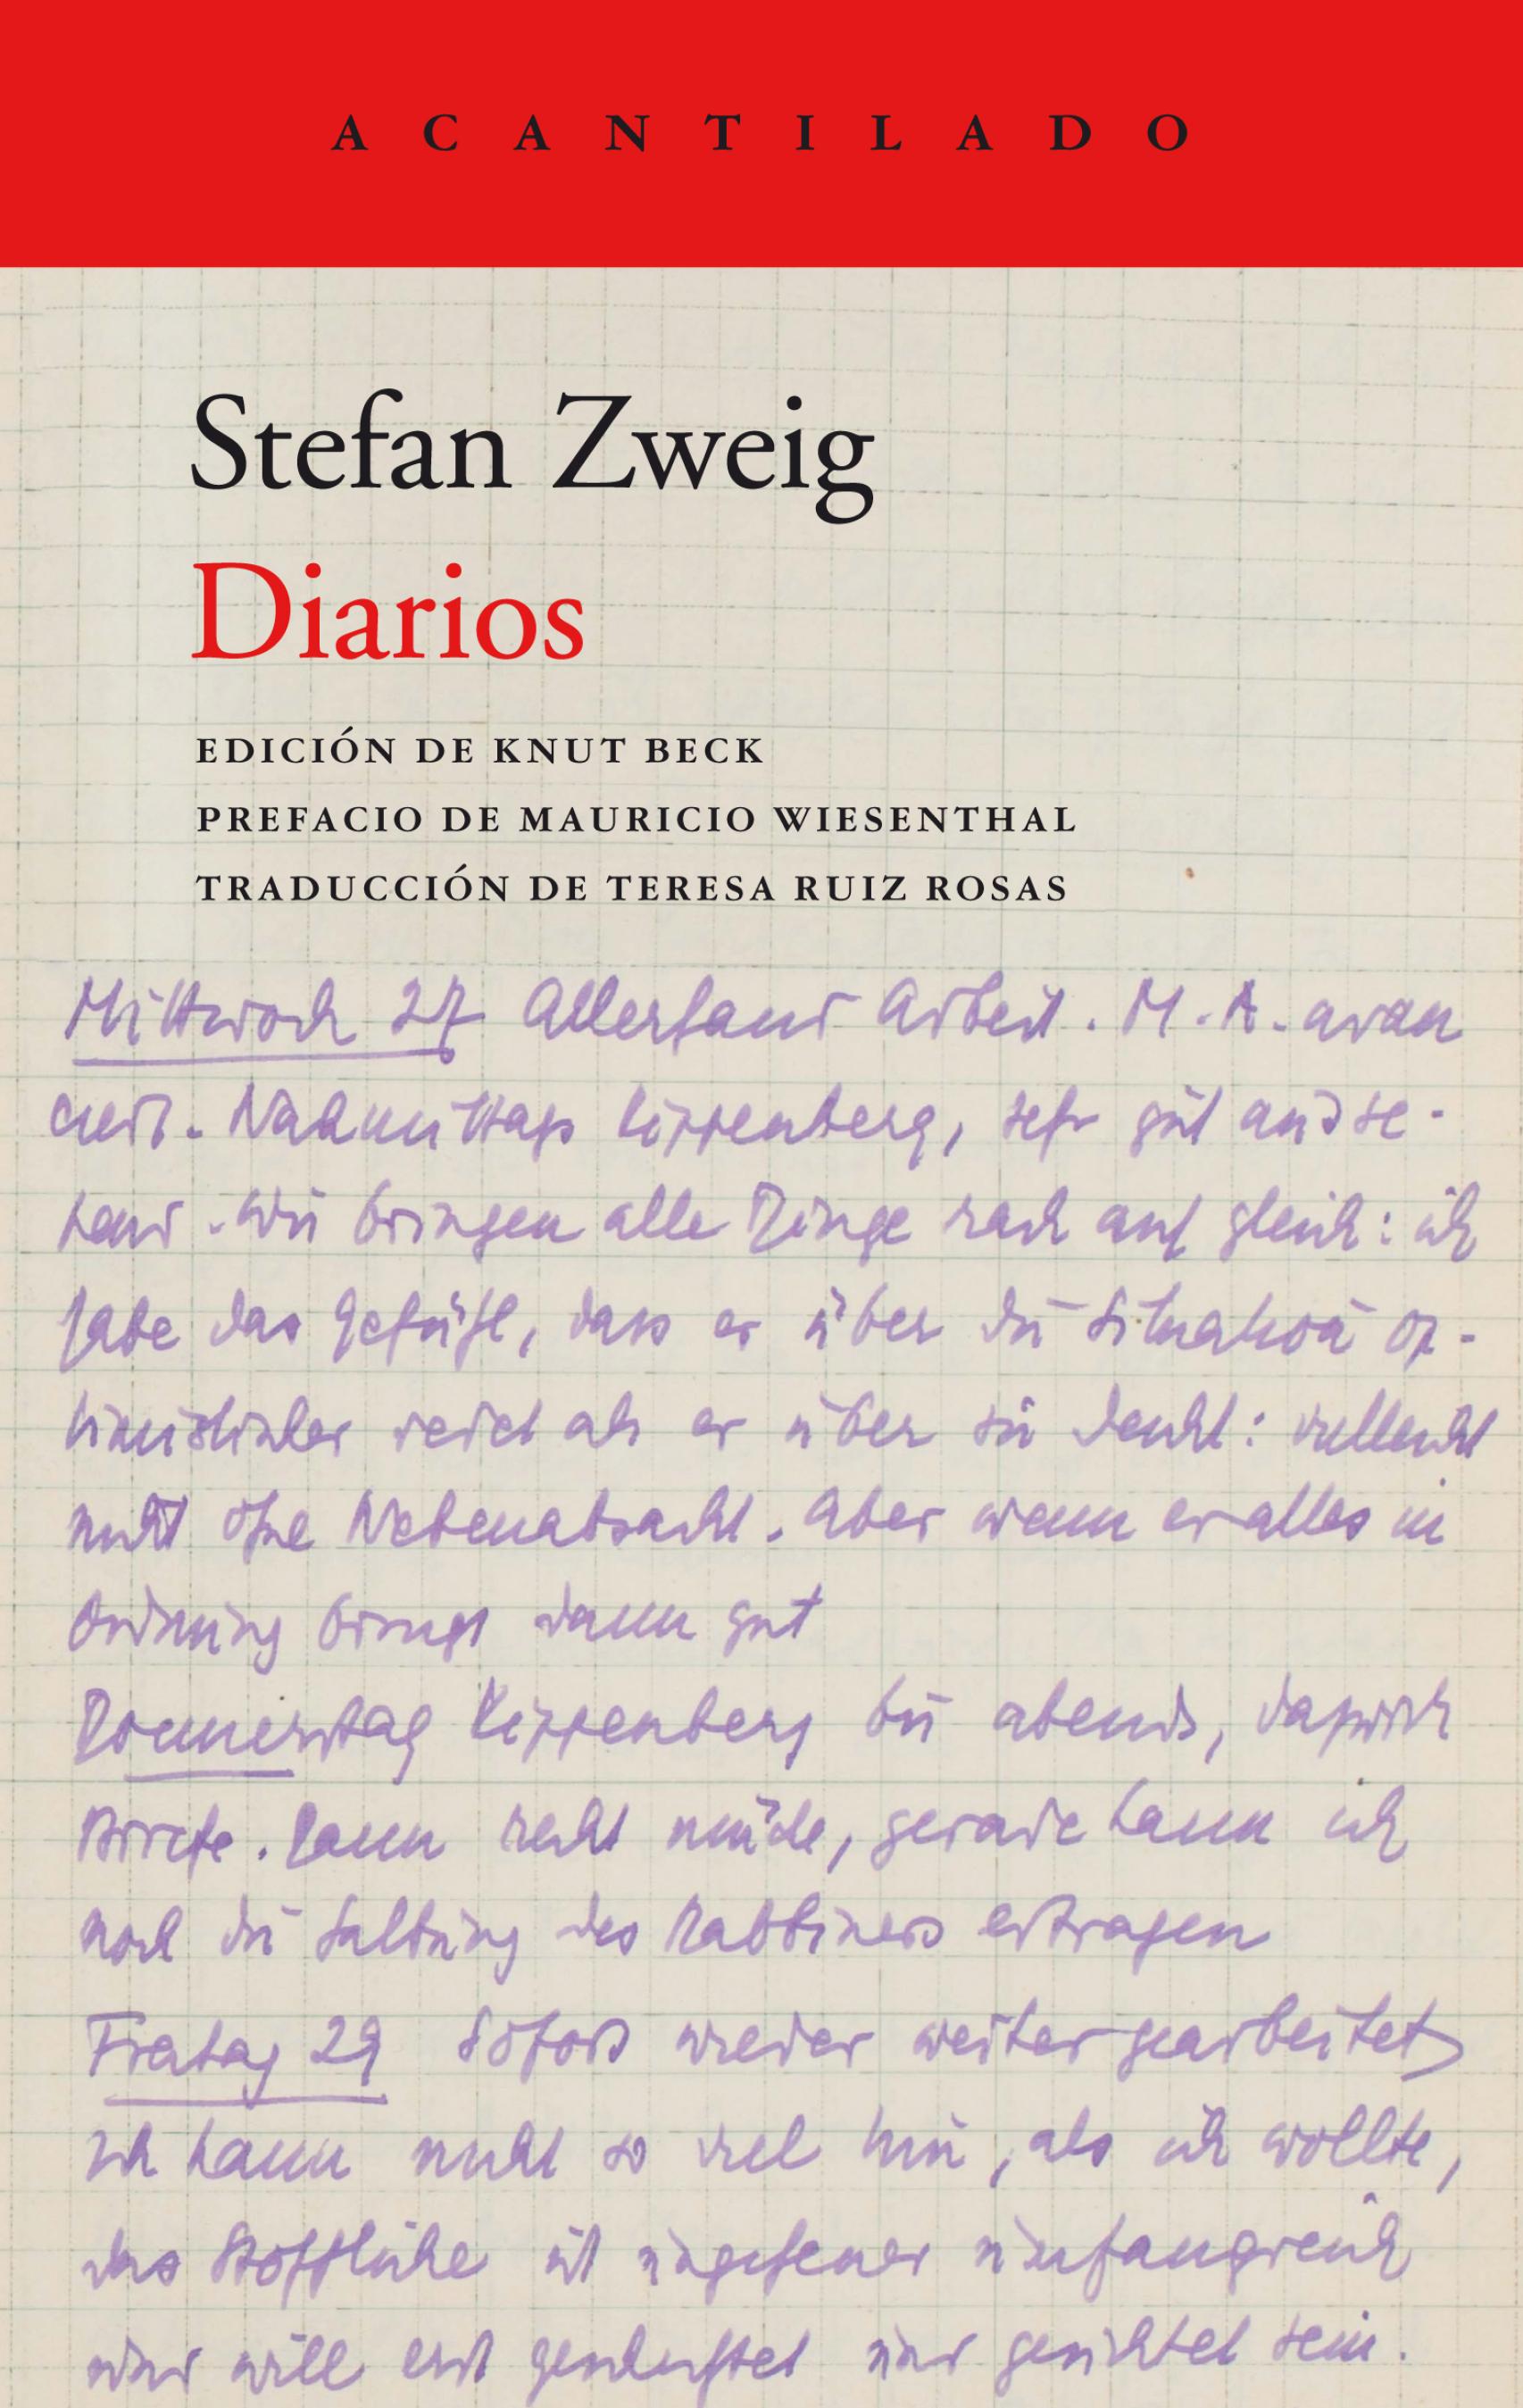 ACANTILADO
Stefan Zweig
Diarios
EDICIÓN DE KNUT BECK
PREFACIO DE MAURICIO WIESENTHAL
TRADUCCIÓN DE TERESA RUIZ ROSAS
Mittwoch 27 Allerhand Arbeit. M. A. avan
ciert. Nachmittags Kippenberg, sehr gut ausse-
hend. Wir bringen alle Dinge rasch auf gleich: ich
habe das Gefühl, dass er über die Situation op-
timistischer redet als er über sie denkt: vielleicht
nicht ohne Nebenabsicht. Aber wenn er alles in
Ordnung bringt dann gut
Donnerstag Kippenberg bis abends, dazwisch
Briefe. Dann recht müde, gerade kann ich
noch die Salbung des Rabbiners ertragen
Freitag 29 Sofort wieder weitergearbeitet
Ich kann nicht so viel tun, als ich wollte,
das Stoffliche ist ungeheuer umfangreich
und will erst gesichtet sein.